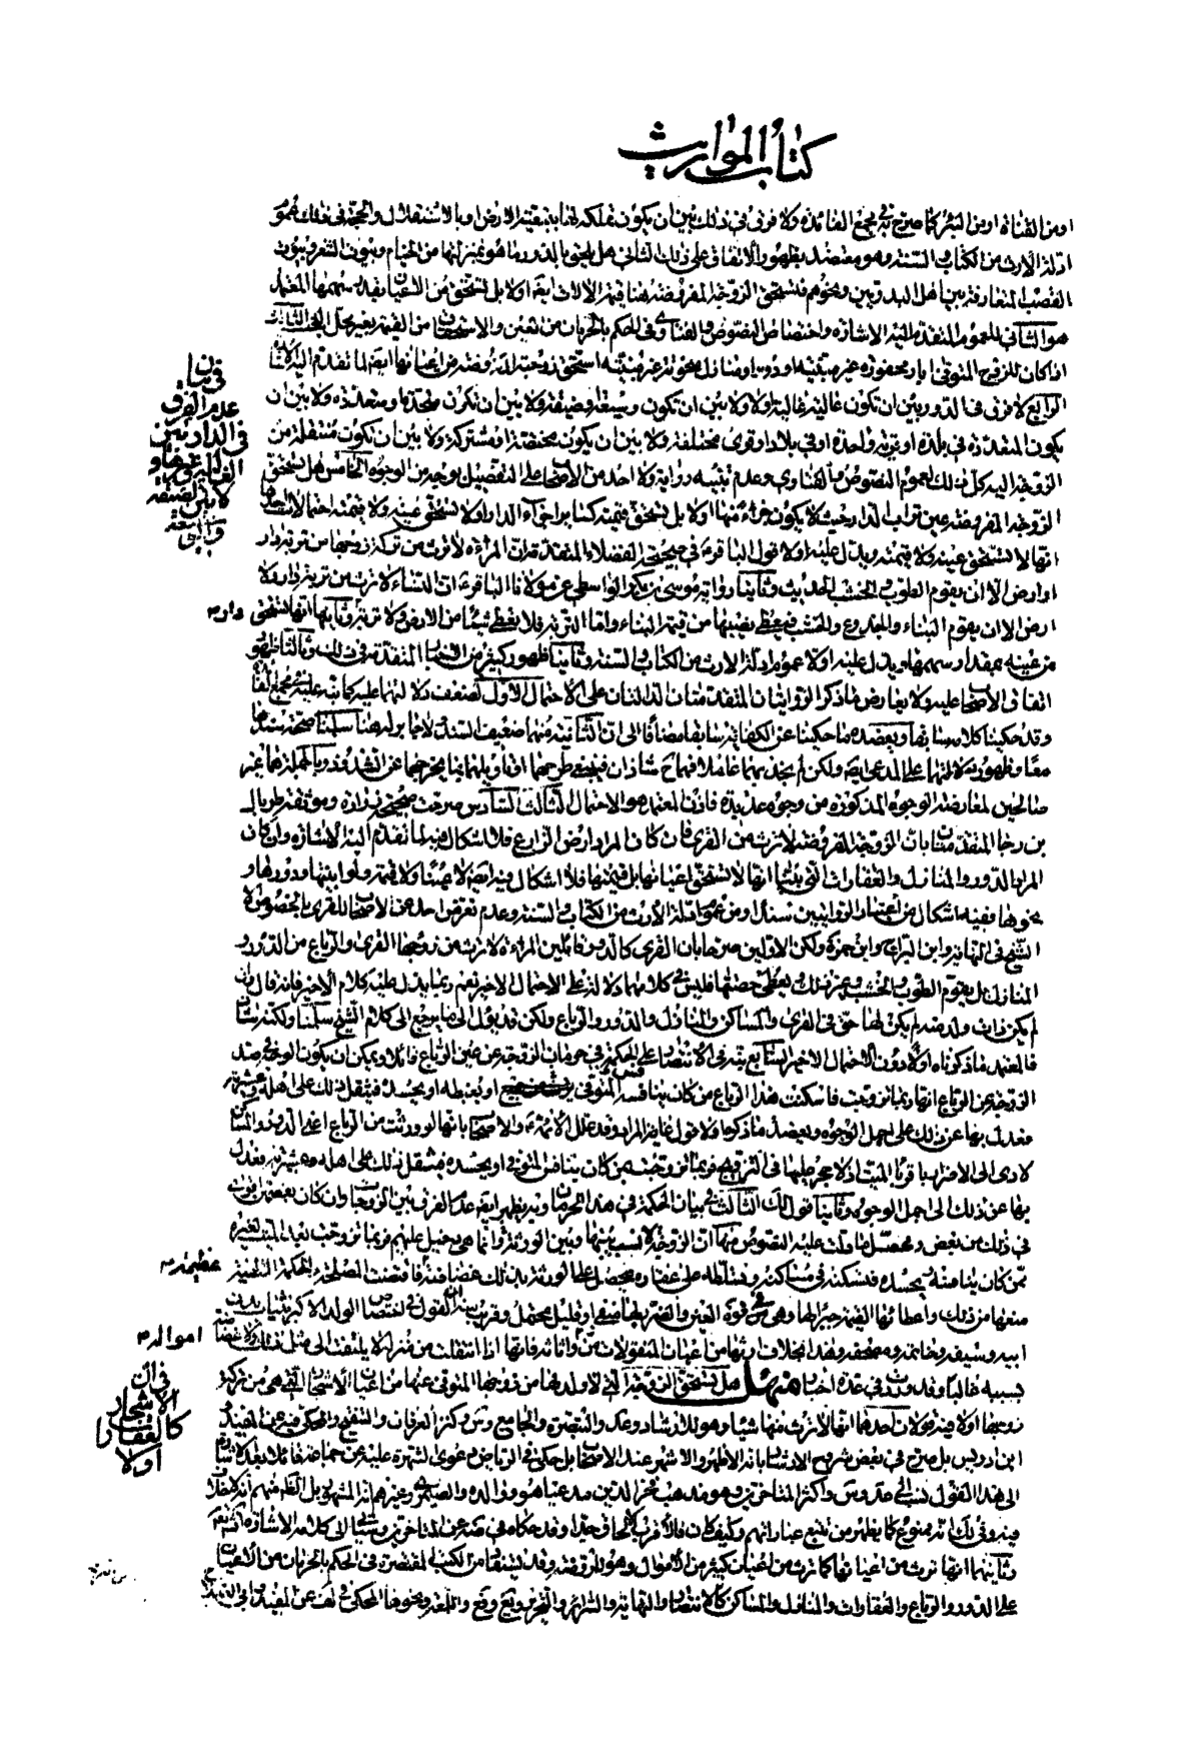 كتاب المواريث
او من القناة او من البئر كما صرح به في مجمع الفائدة ولا فرق في ذلك بين ان يكون تملكه لها بتبعية الارض او بالاستقلال والحجة في ذلك عموم
ادلة الارث من الكتاب والسنة وهو معتضد بظهور الاتفاق على ذلك الثاني هل يلحق بالدور ما هو غيرها من الخيام وبيوت الشعر وبيوت
القصب المتعارفة بين اهل البدو وبين ونحوهم فتستحق الزوجة المفروضة هنا قيمة الالات ايضا اولا بل تستحق من الاعيان بقدر سهمها المعتمد
هو الثاني للعموم المتقدم اليه الاشارة واختصاص النصوص والفتاوى في الحكم بالحرمان من العين والاستحقاق من القيمة بغير محل البحث الثالث
اذا كان للزوج المتوفى ابار محفورة غير مبنية او دور او منازل محوزة غير مبنية استحق زوجته المفروضة من اعيانها ايضا لما تقدم اليه الاشارة
الرابع لا فرق في الدور بين ان تكون عالية غالية اولا ولا بين ان تكون وسيعة او ضيقة ولا بين ان تكون متحدة او متعددة ولا بين ان
يكون المتعددة في بلدة او قرية واحدة او في بلاد او قرى مختلفة ولا بين ان يكون مختصة او مشتركة ولا بين ان تكون منتقلة من
الزوجة اليه كل ذلك لعموم النصوص والفتاوى وعدم تنبيه رواية ولا احد من الاصحاب على التفصيل بوجه من الوجوه الخامس هل تستحق
الزوجة المفروضة عين تراب الدار بحيث لا يكون جزء منها اولا بل تستحق قيمته كسائر اجزاء الدار او لا تستحق عينه ولا قيمته احتمالات احدها
انها لا تستحق عينه ولا قيمته ويدل عليه اولا قول الباقر ع في صحيحة الفضلاء المتقدمة ان المراة لا ترث من تركة زوجها من تربة دار
او ارض الا ان يقوم الطوب والخشب الحديث وثانيا رواية موسى بن بكر الواسطي عن زرارة الباقر ع ان النساء لا ترث من تربة دار ولا
ارض الا ان يقوم البناء والجذوع والخشب فيعطى نصيبها من قيمة البناء واما التربة فلا يعطى شيئا من الارض ولا تربة وثانيها انها تستحق
من عينه بمقدار سهمها ويدل عليه اولا عموم ادلة الارث من الكتاب والسنة وثانيا ظهور كثير من الاخبار المتقدمة في ذلك وثالثا ظهور
اتفاق الاصحاب عليه ولا يعارض ما ذكر الروايتان المتقدمتان الدالتان على الاحتمال الاول لضعف دلالتهما عليه كما نبه عليه في مجمع الفائدة
وقد حكينا كلامه سابقا ويعضده ما حكينا عن الكفاية سابقا مضافا الى ان الثانية منهما ضعيف السند لا جابر له هنا سلمنا صحة سندهما
معا وظهور دلالتهما على المدعى ايضا ولكن لم نجد بهما عاملا فهما شاذان فينبغي طرحهما او تاويلهما بما يخرجهما عن الشذوذ وبالجملة هما غير
صالحين لمعارضة الوجوه المذكورة من وجوه عديدة فاذن المعتمد هو الاحتمال الثالث السادس صرحت صحيحة زرارة وموثقة طربال
بن رجا المتقدمتان بان الزوجة المفروضة لا ترث من القرى فان كان المراد ارض المزارع فلا اشكال فيه لما تقدم اليه الاشارة وان كان
المراد الدور والمنازل والعقارات التي بينا انها لا تستحق اعيانها بل قيمتها فلا اشكال فيه ايضا لا عينا ولا قيمة ولو ابنيتها ودورها او
نحوها ففيه اشكال من اعتبار الروايتين سندا ومن عموم ادلة الارث من الكتاب والسنة وعدم تعرض احد من الاصحاب للقرى بالخصوص الا
الشيخ في النهاية وابن البراج وابن حمزة ولكن الاولين صرحا بان القرى كالدور قائلين المراة لا ترث من زوجها القرى والرباع من الدور و
المنازل بل يقوم الطوب والخشب وغير ذلك ويعطى حصتها فليس في كلامهما دلالة على الاحتمال الاخير نعم ربما يدل عليه كلام الاخير فانه قال وان
لم يكن ذات ولد منه لم يكن لها حق في القرى والمساكن والمنازل والدور والرباع ولكن قد يؤل الى ما يرجع الى كلام الشيخ سلمنا ولكنه شاذ
فالمعتمد ما ذكرناه اولا دون الاحتمال الاخير السابع نبه في الانتصار على الحكمة في حرمان الزوجة عن عين الرباع قائلا ويمكن ان يكون الوجه في صد
الزوجة عن الرباع انها ربما تزوجت فاسكنت هذا الرباع من كان ينافس المتوفى او يغبطه او يحسده فيثقل ذلك على اهله وعشيرته
فعدل بها عن ذلك على اجمل الوجوه ويعضد ما ذكره اولا قول غاية المراد وقد علل الائمة ع والاصحاب بانها لو ورثت من الرباع اعني الدور والمساكن
لادى الى الاضرار باقرباء الميت اذ لا حجر عليها في التزويج فربما تزوجت بمن كان ينافس المتوفى او يحسده فيثقل ذلك على اهله وعشيرته فعدل
بها عن ذلك الى اجمل الوجوه وثانيا قول لك الثالث في بيان الحكمة في هذا الحرمان وبه يظهر ايضا عدم الفرق بين الزوجات وان كان بعضهن اقوى
في ذلك من بعض ومحصل ما دلت عليه النصوص منها ان الزوجة لا نسب بينها وبين الورثة وانما هي دخيل عليهم فربما تزوجت بعد الميت بغيره
ممن كان ينافسه يحسده فتسكنه في مساكنه وتسلطه على عقاره فيحصل على الورثة بذلك غضاضة عظيمة فاقتضت المصلحة والحكمة الالهية
منعها من ذلك واعطائها القيمة جبرا لها وهي في قوة العين والضرر بها منفي او قليل محتمل وقريب منه القول في اختصاص الولد الاكبر بثياب بدن
ابيه وسيفه وخاتمه ومصحفه وهذا بخلاف ارثها من اعيان المنقولات من اموالهم واثاثه فانها اذا انتقلت من قنية لا يلتفت الى مثل ذلك ولا غضاضة
بسببه غالبا وقد ورد في عدة اخبار منهل هل تستحق الزوجة التي لا ولد لها من زوجها المتوفى عنها من اعيان الاشجار التي هي من تركة
زوجها اولا فيه قولان احدهما انها لا ترث منها شيئا وهو للارشاد وعد والتبصرة والجامع وس وكنز العرفان والتنقيح والمحكي فيه عن المفيد
ابن ادريس بل صرح في بعض شروح الارشاد بانه الاظهر والاشهر عند الاصحاب بل حكى في الرياض دعوى الشهرة عليه عن جماعة قائلا بعد الاشارة
الى هذا القول نسب الى عد وس واكثر المتاخرين وهو مذهب فخر الدين مدعيا هو ووالده والصيمري وغيرهم انه المشهور بل الظاهر منهم انه لا خلاف
فيه وفي ذلك انه ممنوع كما يظهر من تتبع عباراتهم وكيف كان فالاقرب الالحاق جدا وقد حكاه في ضه عن المتاخرين وسياتي الى كلامه الاشارة انتهى
وثانيهما انها ترث من اعيانها كما ترث من اعيان كثير من الاموال وهو للروضة وقد يستفاد من الكتب المقتصرة في الحكم بالحرمان من الاعيان
على الدور والرباع والعقارات والمنازل والمساكن كالانتصار والنهاية والشرائع والتحرير ويع وقع واللمعة ونحوها المحكي في لف عن المفيد
في بيان
عدم الفرق
في الدار بين
الغالية وغيرها و
لا بين الضيقة
والوسيعة
دار م
عظيمة م
اموالهم
في ان
الاشجار
كالعقار
اولا